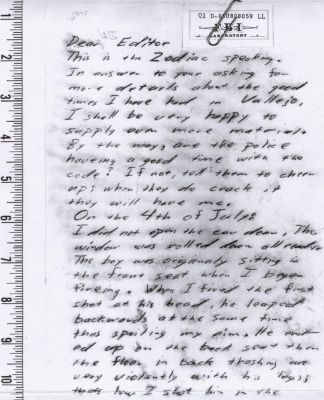 01 D-6 0808059 LL
FBI
LABORATORY
Dear Editor
This is the Zodiac speaking.
In answer to your asking for
more details about the good
times I have had in Vallejo,
I shall be very happy to
supply even more material.
By the way, are the police
haveing a good time with the
code? If not, tell them to cheer
up; when they do crack it
they will have me.
On the 4th of July:
I did not open the car door, The
window was rolled down all ready.
The boy was origionaly sitting in
the front seat when I began
fireing. When I fired the first
shot at his head, he leaped
backwards at the same time
thus spoiling my aim. He end
ed up on the back seat then
the floor in back thashing out
very violently with his legs;
thats how I shot him in the
1
2
3
4
5
6
7
8
9
10